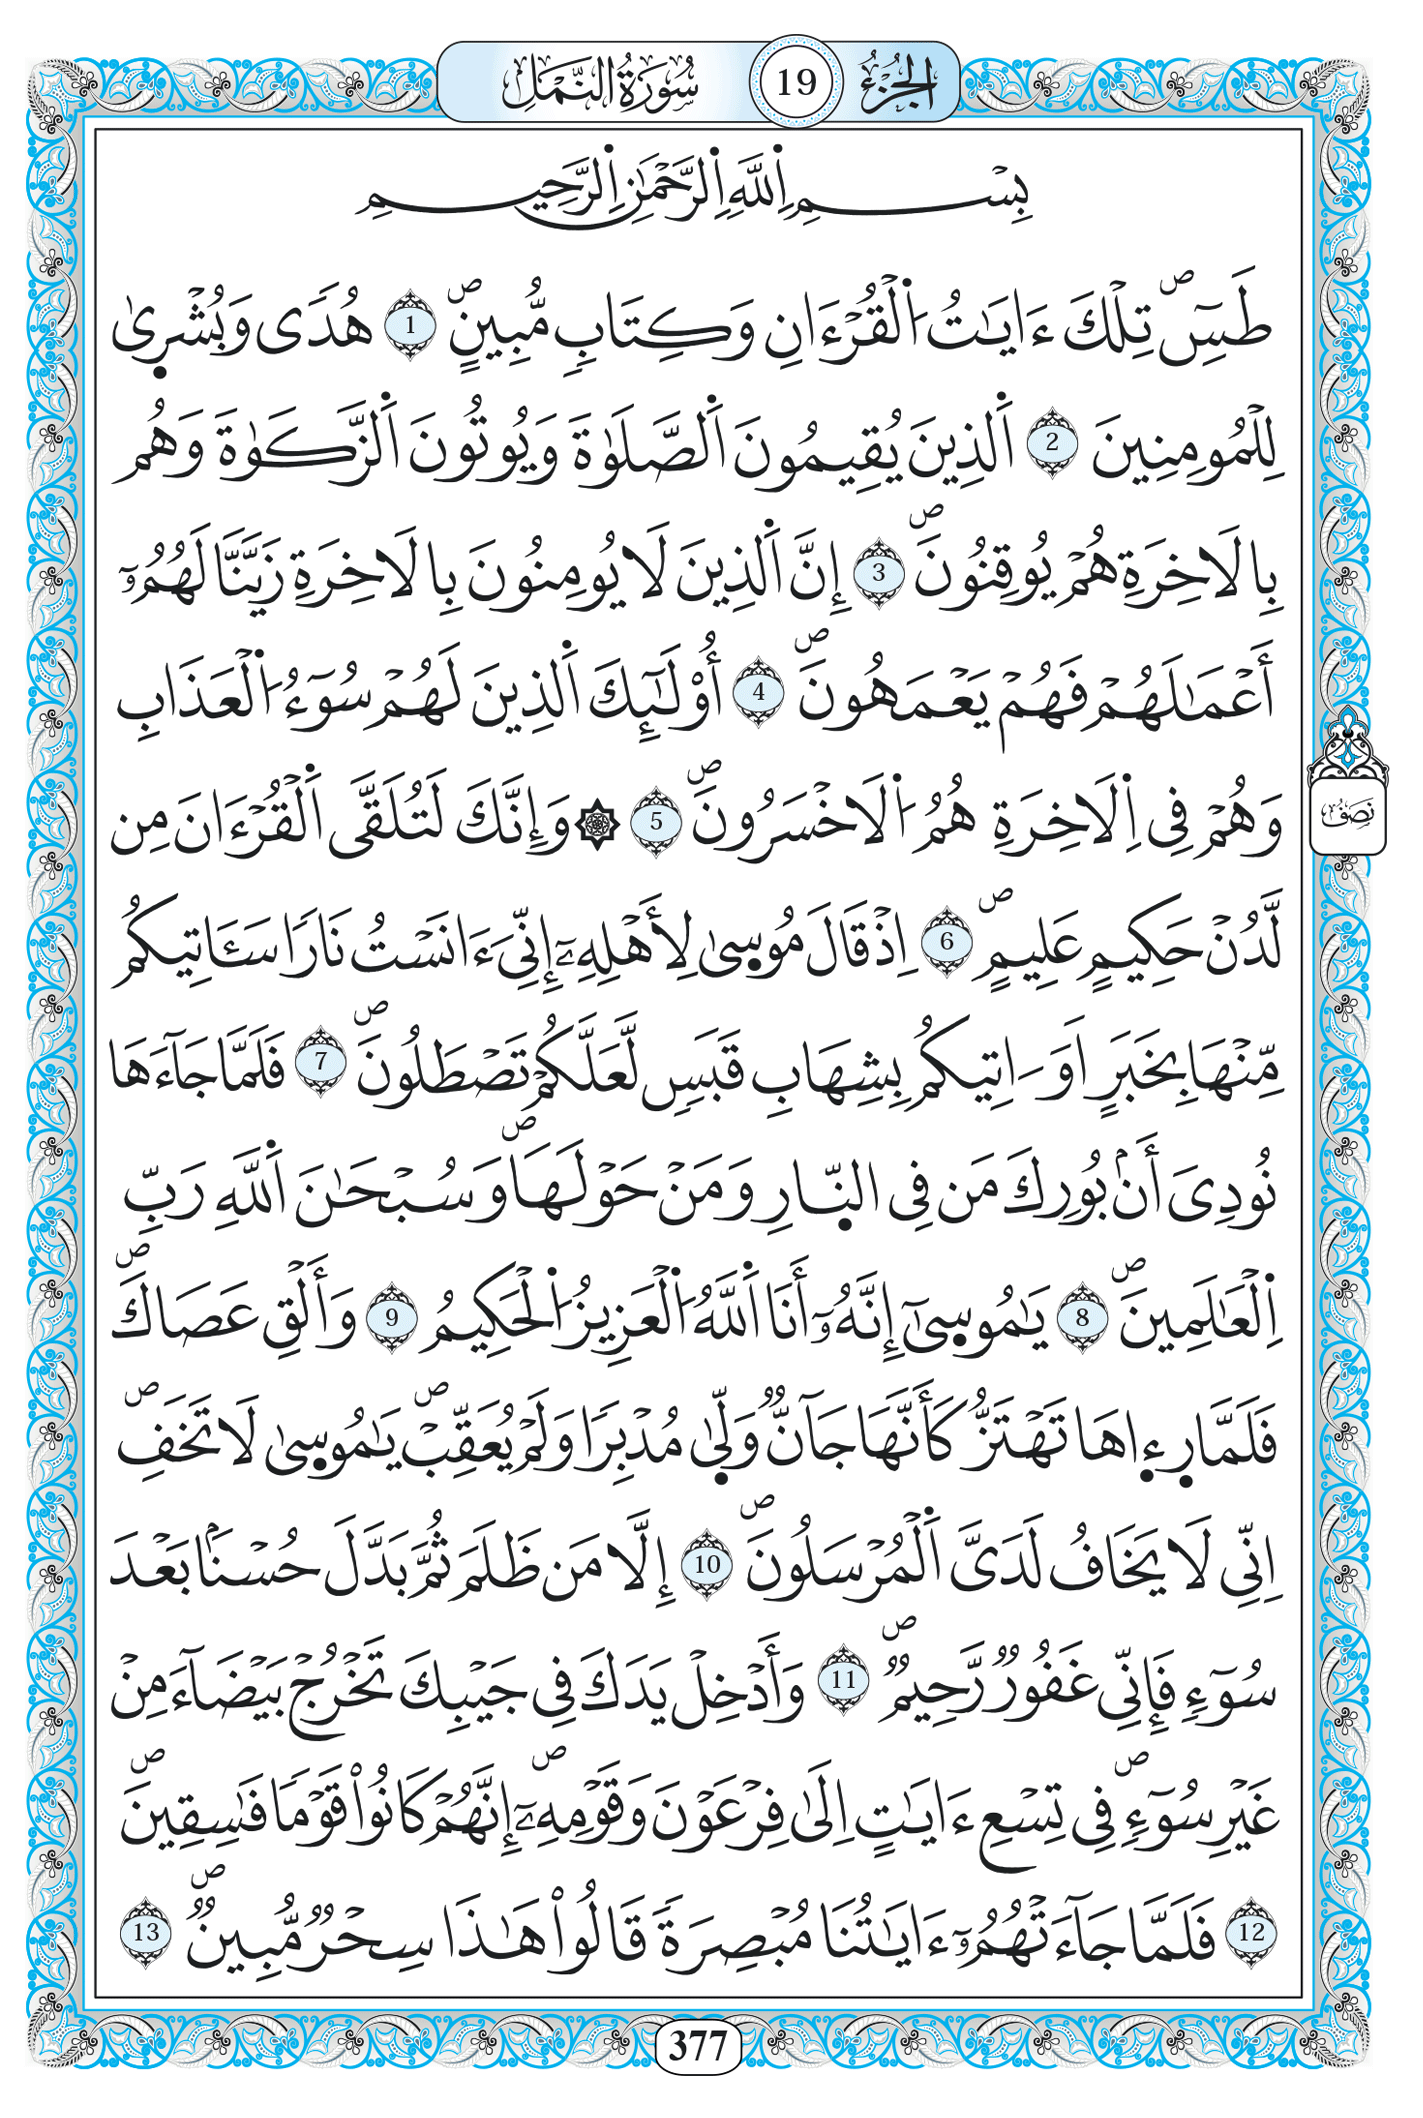 الجزء 19 سورة النمل
بِسْمِ اِ۬للَّهِ اِ۬لرَّحْمَٰنِ اِ۬لرَّحِيمِ
طَسِٓۖ تِلْكَ ءَايَٰتُ اُ۬لْقُرْءَانِ وَكِتَابٖ مُّبِينٍۖ 1 هُدٗى وَبُشْر۪يٰ
لِلْمُومِنِينَ 2 اَ۬لذِينَ يُقِيمُونَ اَ۬لصَّلَوٰةَ وَيُوتُونَ اَ۬لزَّكَوٰةَ وَهُم
بِالَاخِرَةِ هُمْ يُوقِنُونَۖ 3 إِنَّ اَ۬لذِينَ لَا يُومِنُونَ بِالَاخِرَةِ زَيَّنَّا لَهُمُۥٓ
أَعْمَٰلَهُمْ فَهُمْ يَعْمَهُونَۖ 4 أُوْلَٰٓئِكَ اَ۬لذِينَ لَهُمْ سُوٓءُ اُ۬لْعَذَابِ
وَهُمْ فِي اِ۬لَاخِرَةِ هُمُ اُ۬لَاخْسَرُونَۖ 5 ۞ وَإِنَّكَ لَتُلَقَّى اَ۬لْقُرْءَانَ مِن
لَّدُنْ حَكِيمٍ عَلِيمٍۖ 6 اِذْ قَالَ مُوس۪يٰ لِأَهْلِهِۦٓ إِنِّيَ ءَانَسْتُ نَارٗا سَـَٔاتِيكُم
مِّنْهَا بِخَبَرٍ اَوَ اٰتِيكُم بِشِهَابِ قَبَسٖ لَّعَلَّكُمْ تَصْطَلُونَۖ 7 فَلَمَّا جَآءَهَا
نُودِيَ أَنۢ بُورِكَ مَن فِي اِ۬لنّ۪ارِ وَمَنْ حَوْلَهَاۖ وَسُبْحَٰنَ اَ۬للَّهِ رَبِّ
اِ۬لْعَٰلَمِينَۖ 8 يَٰمُوس۪يٰٓ إِنَّهُۥٓ أَنَا اَ۬للَّهُ اُ۬لْعَزِيزُ اُ۬لْحَكِيمُ 9 وَأَلْقِ عَصَاكَۖ
فَلَمَّا ر۪ء۪اهَا تَهْتَزُّ كَأَنَّهَا جَآنّٞ وَلّ۪يٰ مُدْبِرٗا وَلَمْ يُعَقِّبْۖ يَٰمُوس۪يٰ لَا تَخَفِۖ
اِنِّي لَا يَخَافُ لَدَيَّ اَ۬لْمُرْسَلُونَۖ 10 إِلَّا مَن ظَلَمَ ثُمَّ بَدَّلَ حُسْناَۢ بَعْدَ
سُوٓءٖ فَإِنِّي غَفُورٞ رَّحِيمٞۖ 11 وَأَدْخِلْ يَدَكَ فِي جَيْبِكَ تَخْرُجْ بَيْضَآءَ مِنْ
غَيْرِ سُوٓءٖۖ فِي تِسْعِ ءَايَٰتٍ اِلَىٰ فِرْعَوْنَ وَقَوْمِهِۦٓۖ إِنَّهُمْ كَانُواْ قَوْمٗا فَٰسِقِينَۖ
12 فَلَمَّا جَآءَتْهُمُۥٓ ءَايَٰتُنَا مُبْصِرَةٗ قَالُواْ هَٰذَا سِحْرٞ مُّبِينٞۖ 13
نصف
377